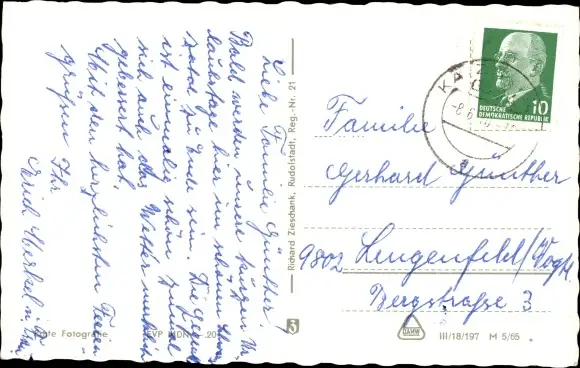 Liebe Familie Günther!
Bald werden unsere kurzen Ur
laubstage hier im schönen
zatal zu Ende sein. Die Gegend
ist einmalig schön
sich auch das Wetter
gebessert hat.
Mit den herzlichsten
grüßen Ihr
Erich Merkel u. Frau
Richard Zieschank, Rudolstadt, Reg.-Nr. 21
Echte Fotografie
EVP MDN -.20
3
DEUTSCHE
DEMOKRATISCHE REPUBLIK
10
KA
-8.6
Familie
Gerhard Günther
9802 Lengenfeld/Vogtl.
Bergstraße 3
III/18/197 M 5/65